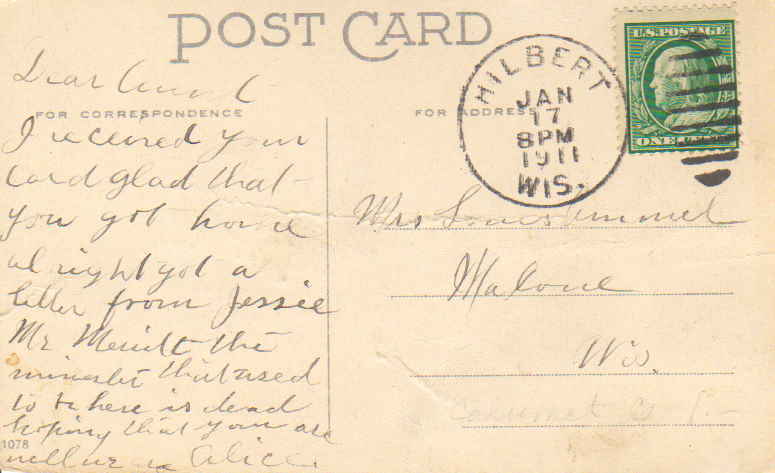 POST CARD
FOR CORRESPONDENCE
Dear Aunt
I received your
card glad that
you got home
alright got a
letter from Jessie
Mr Merritt the
minester that used
to be here is dead
hoping that your are
well
Alice
1078
FOR ADDRESS
HILBERT
JAN
17
8PM
1911
WIS.
U.S. POSTAGE
ONE CENT
Mrs
Malone
Wis.
Calumet Co